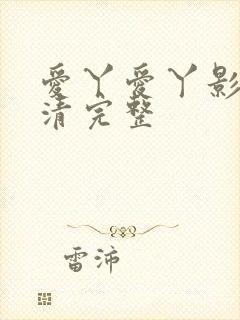 愛丫愛丫影
清完整
雷沛